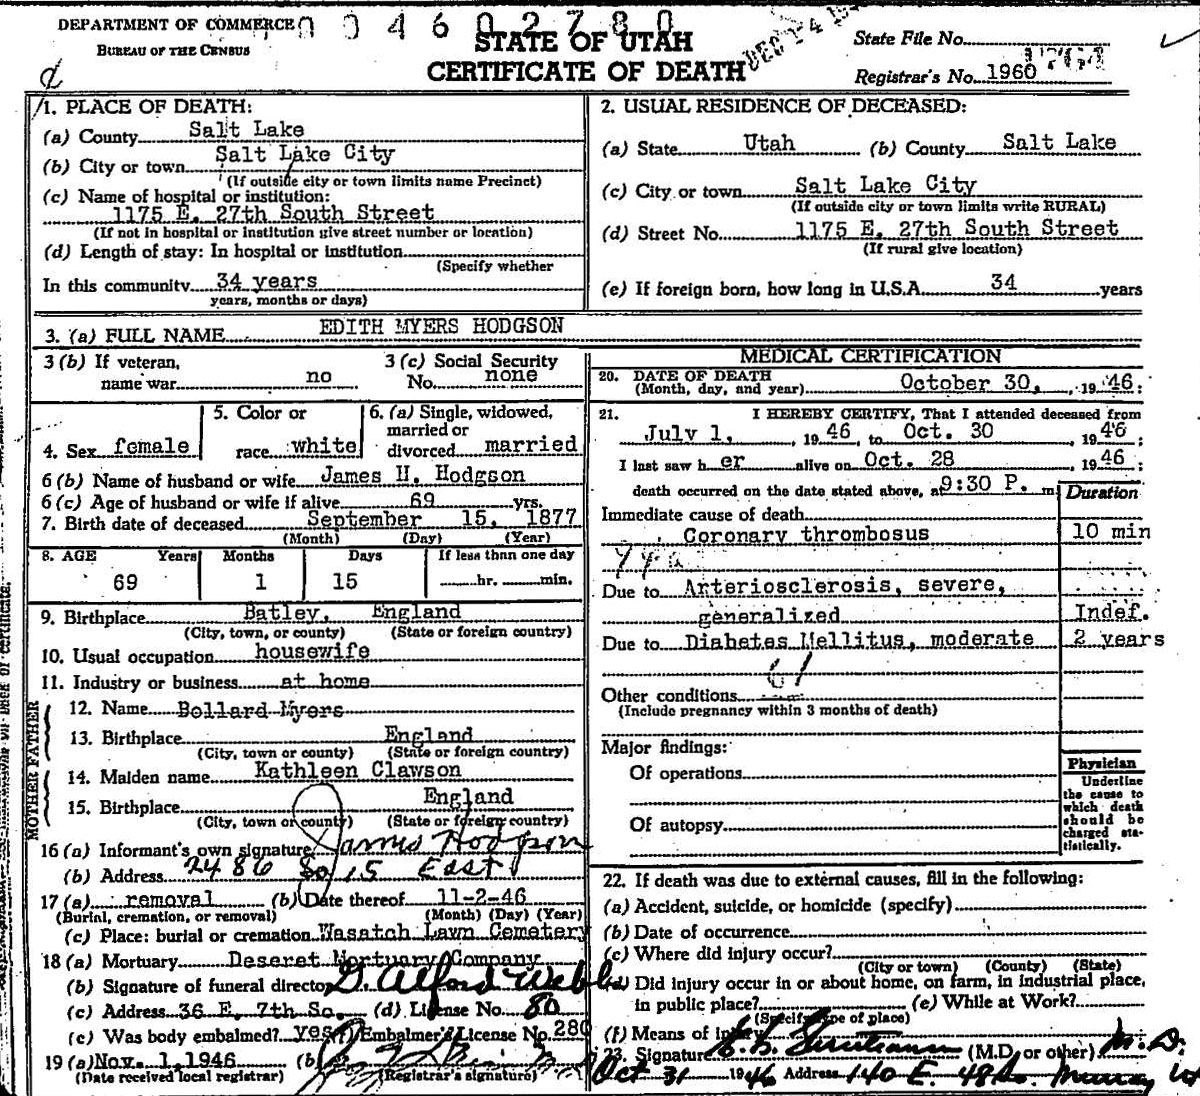 DEPARTMENT OF COMMERCE
BUREAU OF THE CENSUS
004602780
STATE OF UTAH
CERTIFICATE OF DEATH
State File No.
Registrar's No. 1960
1. PLACE OF DEATH:
(a) County Salt Lake
(b) City or town Salt Lake City
(If outside city or town limits name Precinct)
(c) Name of hospital or institution:
1175 E. 27th South Street
(If not in hospital or institution give street number or location)
(d) Length of stay: In hospital or institution
(Specify whether
In this community 34 years
years, months or days)
2. USUAL RESIDENCE OF DECEASED:
(a) State Utah (b) County Salt Lake
(c) City or town Salt Lake City
(If outside city or town limits write RURAL)
(d) Street No. 1175 E. 27th South Street
(If rural give location)
(e) If foreign born, how long in U.S.A. 34 years
3. (a) FULL NAME EDITH MYERS HODGSON
3 (b) If veteran,
name war no
3 (c) Social Security
No. none
4. Sex female
5. Color or
race white
6. (a) Single, widowed,
married or
divorced married
6 (b) Name of husband or wife James H. Hodgson
6 (c) Age of husband or wife if alive 69 yrs.
7. Birth date of deceased September 15, 1877
(Month) (Day) (Year)
8. AGE Years Months Days If less than one day
69 1 15 hr. min.
9. Birthplace Batley, England
(City, town, or county) (State or foreign country)
10. Usual occupation housewife
11. Industry or business at home
FATHER
12. Name Bollard Myers
13. Birthplace England
(City, town or county) (State or foreign country)
MOTHER
14. Maiden name Kathleen Clawson
15. Birthplace England
(City, town or county) (State or foreign country)
16 (a) Informant's own signature James Hodgson
(b) Address 2486 So 15 East
17 (a) removal (b) Date thereof 11-2-46
(Burial, cremation, or removal) (Month) (Day) (Year)
(c) Place: burial or cremation Wasatch Lawn Cemetery
18 (a) Mortuary Deseret Mortuary Company
(b) Signature of funeral director G. Alford Webb
(c) Address 36 E. 7th So. (d) License No. 80
(e) Was body embalmed? yes (f) Embalmer's License No. 280
19 (a) Nov. 1, 1946 (b)
(Date received local registrar) (Registrar's signature)
MEDICAL CERTIFICATION
20. DATE OF DEATH
(Month, day, and year) October 30, 1946;
21. I HEREBY CERTIFY, That I attended deceased from
July 1, 1946 to Oct. 30 1946;
I last saw her alive on Oct. 28, 1946;
death occurred on the date stated above, at 9:30 P. m
Duration
Immediate cause of death
Coronary thrombosus 10 min
Due to Arteriosclerosis, severe,
generalized Indef.
Due to Diabetes Mellitus, moderate 2 years
61
Other conditions
(Include pregnancy within 3 months of death)
Major findings:
Of operations
Of autopsy
Physician
Underline
the cause to
which death
should be
charged sta-
tistically.
22. If death was due to external causes, fill in the following:
(a) Accident, suicide, or homicide (specify)
(b) Date of occurrence
(c) Where did injury occur?
(City or town) (County) (State)
(d) Did injury occur in or about home, on farm, in industrial place,
in public place? (e) While at Work?
(Specify type of place)
(f) Means of injury
23. Signature (M.D. or other) M.D.
Oct 31 1946 Address 140 E. 48 So. Murray